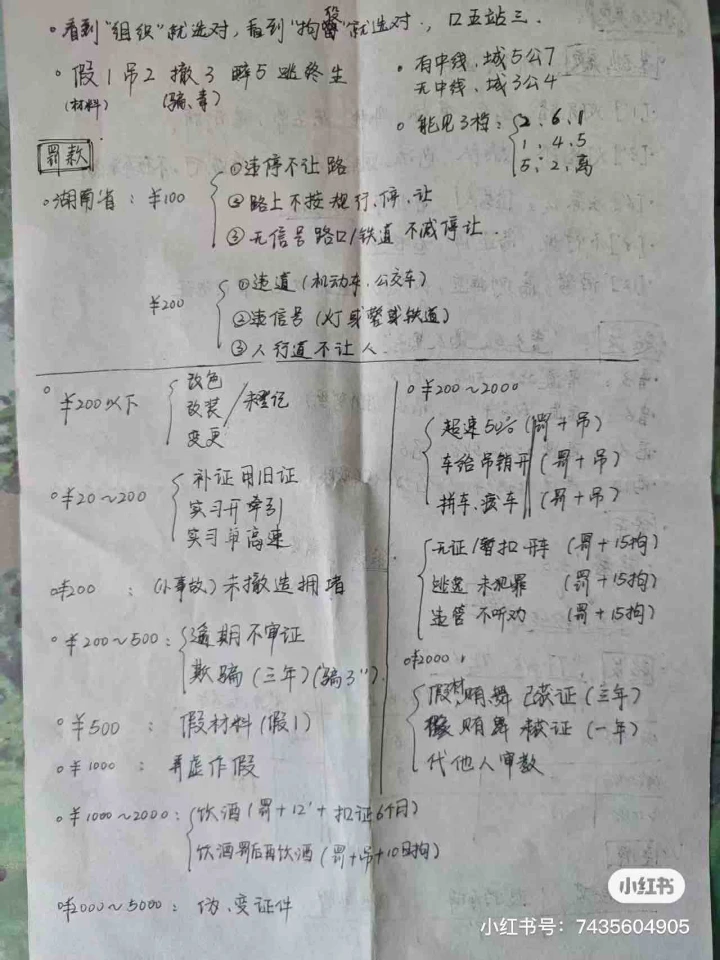 。看到"组织"就选对,看到"拘役"就选对,口五站三.
。假1吊2撤3醉5逃终生
(材料) (骗、毒)
。有中线、城5公7
无中线、城3公4
。能见3档:2、6、1
1、4、5
5、2、离
罚款
。湖南省:¥100
①违停不让路
②路上不按规行、停、让
③无信号路口/铁道不减停让.
¥200
①违道(机动车、公交车)
②违信号(灯或警或铁道)
③人行道不让人
。¥200以下
改色
改装/未登记
变更
。¥20~200
补证用旧证
实习开牵引
实习单高速
。¥200:(小事故)未撤造拥堵
。¥200~500:
逾期不审证
欺骗(三年)("骗3")
。¥500:假材料(假1)
。¥1000:弄虚作假
。¥1000~2000:
饮酒(罚+12'+扣证6个月)
饮酒罚后再饮酒(罚+吊+10日拘)
。¥2000~5000:伪、变证件
。¥200~2000
超速50%(罚+吊)
车给吊销开(罚+吊)
拼车、废车(罚+吊)
无证/暂扣开车(罚+15拘)
逃逸未犯罪(罚+15拘)
违管不听劝(罚+15拘)
。¥2000
贿、舞已获证(三年)
贿舞未获证(一年)
代他人审教
小红书
小红书号:7435604905